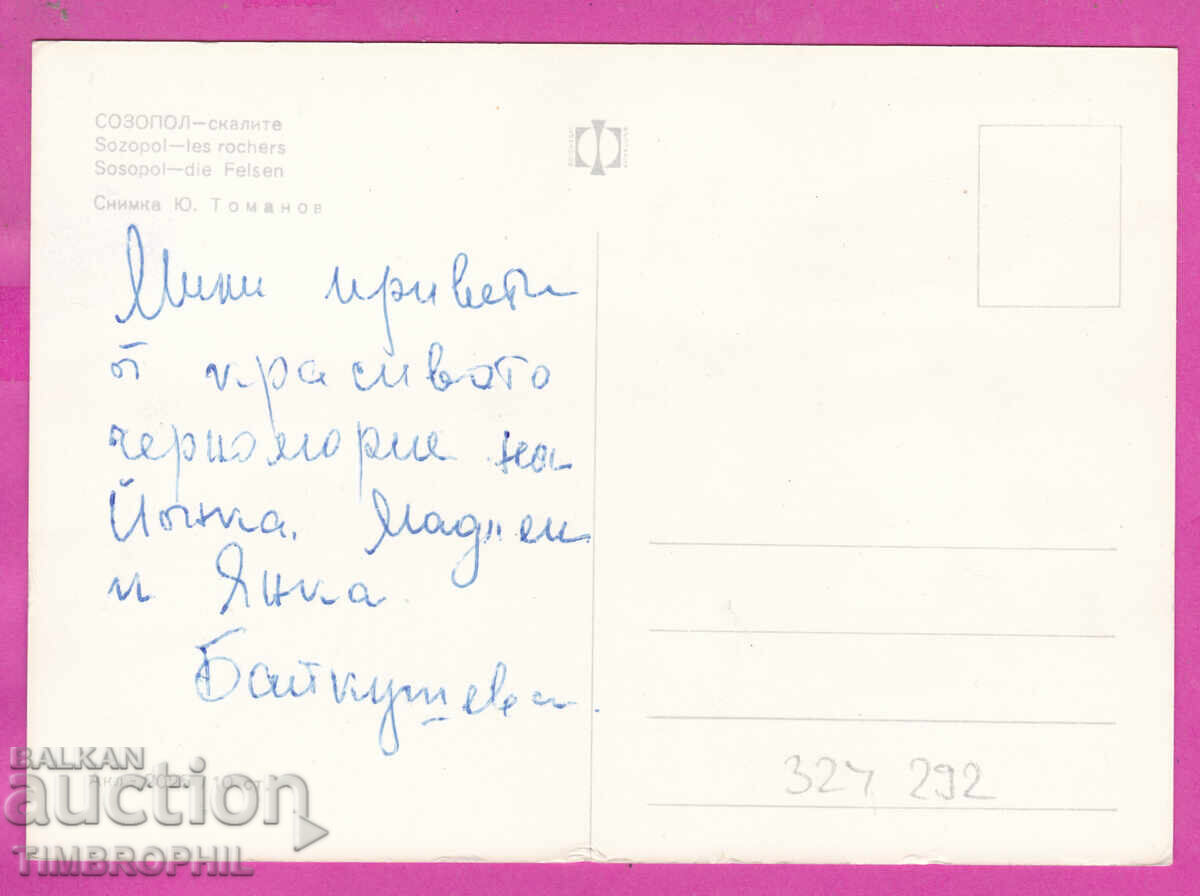 СОЗОПОЛ—скалите
Sozopol—les rochers
Sosopol—die Felsen
Снимка Ю. Томанов
Мили привети
от красивото
черноморие на
Йонка, Мадлен
и Янка.
Байкушева.
Акл-2025 10 ст.
327 292
BALKAN
auction
TIMBROPHIL